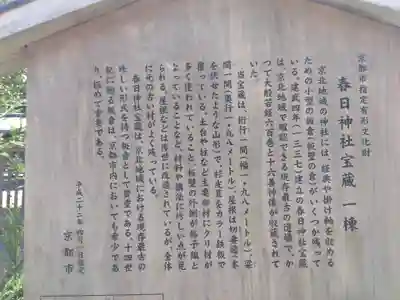 京都市指定有形文化財
春日神社宝蔵 一棟
京北地域の神社には、経典や掛け軸を収める
ための小型の板倉(板壁の倉)がいくつか残って
いる。建武四年(一三三七)建立の春日神社宝蔵
は、京北地域で確認できる現存最古の遺構で、か
つて大般若経六百巻と十六善神像が収蔵されて
いた。
当宝蔵は、桁行一間(幅一・九八メートル)、梁
間一間(奥行一・九八メートル)、屋根は切妻造(本
を伏せたような山形)で、杉皮葺をカラー鉄板で
覆っている。土台や柱など主要部材にクリ材が
多く使われていること、板壁の外側が格子組と
なっていることなど、材料や構法に珍しい点が見
られる。屋根などは後世に改造されているが、全体
に元の古い材がよく残っている。
春日神社宝蔵は、京北地域における現存最古の
珍しい形式を持つ板倉として貴重である。十四世
紀に遡る板倉は、京都市内においても希少であ
り、極めて重要である。
平成二十二年四月一日指定
京都市